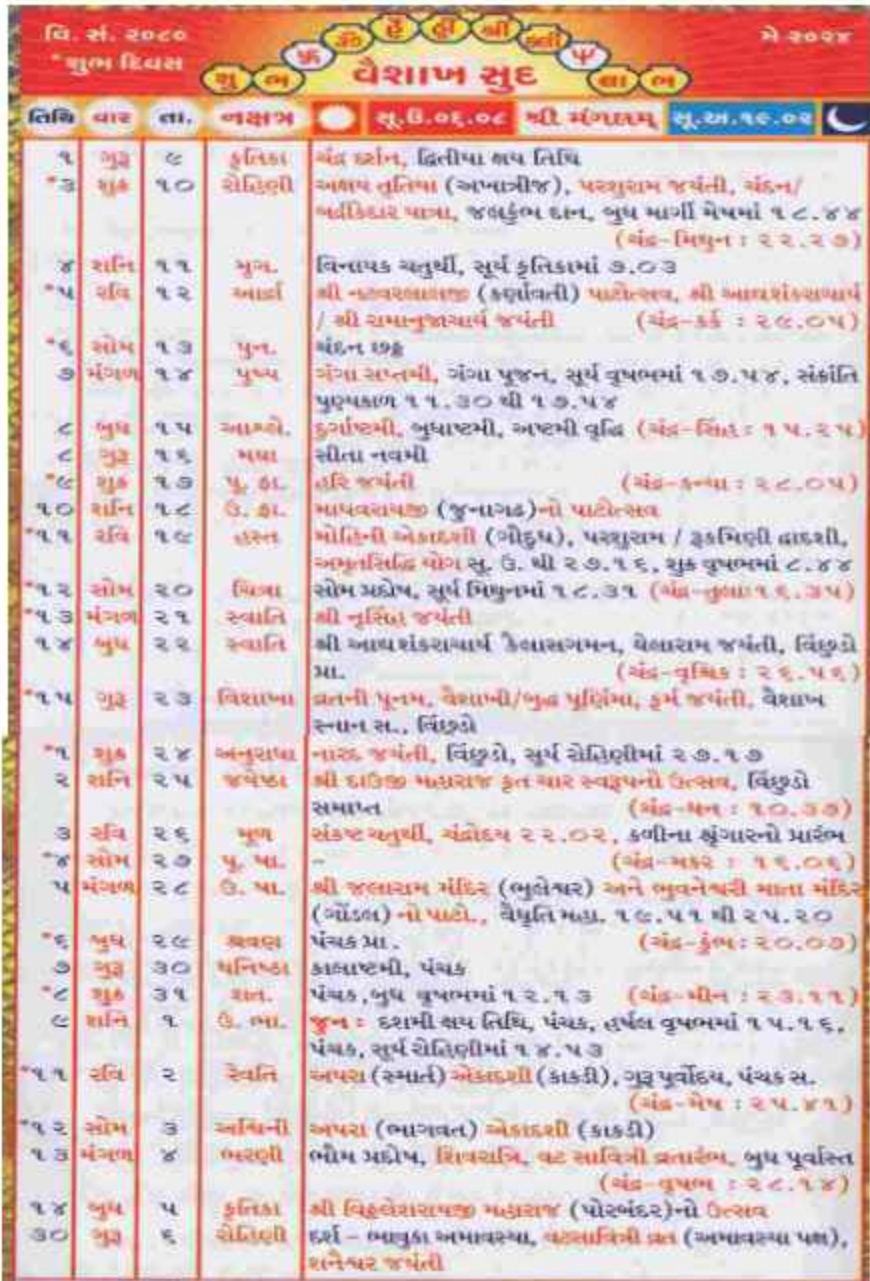 વિ. સં. ૨૦૮૦
*શુભ દિવસ
શુ ભ 卐 ૐ હ્રેં હ્રીં શ્રી ક્લીં લા ભ
વૈશાખ સુદ
મે ૨૦૨૪
તિથિ વાર તા. નક્ષત્ર સૂ.ઉ.૦૬.૦૮ શ્રી મંગલમ્ સૂ.અ.૧૯.૦૨
૧ ગુરૂ ૯ કૃતિકા ચંદ્ર દર્શન, દ્વિતીયા ક્ષય તિથિ
*૩ શુક્ર ૧૦ રોહિણી અક્ષય તૃતિયા (અખાત્રીજ), પરશુરામ જયંતી, ચંદન/
બદ્રીકેદાર યાત્રા, જલકુંભ દાન, બુધ માર્ગી મેષમાં ૧૮.૪૪
(ચંદ્ર-મિથુન : ૨૨.૨૭)
૪ શનિ ૧૧ મૃગ. વિનાયક ચતુર્થી, સૂર્ય કૃતિકામાં ૭.૦૩
*૫ રવિ ૧૨ આર્દ્રા શ્રી નટવરલાલજી (કર્ણાવતી) પાટોત્સવ, શ્રી આદ્યશંકરાચાર્ય
/ શ્રી રામાનુજાચાર્ય જયંતી (ચંદ્ર-કર્ક : ૨૯.૦૫)
*૬ સોમ ૧૩ પુન. ચંદન છઠ્ઠ
૭ મંગળ ૧૪ પુષ્ય ગંગા સપ્તમી, ગંગા પૂજન, સૂર્ય વૃષભમાં ૧૭.૫૪, સંક્રાંતિ
પુણ્યકાળ ૧૧.૩૦ થી ૧૭.૫૪
૮ બુધ ૧૫ આશ્લે. દુર્ગાષ્ટમી, બુધાષ્ટમી, અષ્ટમી વૃદ્ધિ (ચંદ્ર-સિંહ : ૧૫.૨૫)
૮ ગુરૂ ૧૬ મઘા સીતા નવમી
*૯ શુક્ર ૧૭ પૂ. ફા. હરિ જયંતી (ચંદ્ર-કન્યા : ૨૮.૦૫)
૧૦ શનિ ૧૮ ઉ. ફા. માધવરાયજી (જુનાગઢ)નો પાટોત્સવ
*૧૧ રવિ ૧૯ હસ્ત મોહિની એકાદશી (ગૌદુધ), પરશુરામ / રૂકમિણી દ્વાદશી,
અમૃતસિદ્ધિ યોગ સૂ. ઉ. થી ૨૭.૧૬, શુક્ર વૃષભમાં ૮.૪૪
*૧૨ સોમ ૨૦ ચિત્રા સોમ પ્રદોષ, સૂર્ય મિથુનમાં ૧૮.૩૧ (ચંદ્ર-તુલા:૧૬.૩૫)
*૧૩ મંગળ ૨૧ સ્વાતિ શ્રી નૃસિંહ જયંતી
૧૪ બુધ ૨૨ સ્વાતિ શ્રી આદ્યશંકરાચાર્ય કૈલાસગમન, વેલારામ જયંતી, વિંછુડો
પ્રા. (ચંદ્ર-વૃશ્ચિક : ૨૬.૫૬)
*૧૫ ગુરૂ ૨૩ વિશાખા વ્રતની પૂનમ, વૈશાખી/બુદ્ધ પૂર્ણિમા, કુર્મ જયંતી, વૈશાખ
સ્નાન સ., વિંછુડો
*૧ શુક્ર ૨૪ અનુરાધા નારદ જયંતી, વિંછુડો, સૂર્ય રોહિણીમાં ૨૭.૧૭
૨ શનિ ૨૫ જયેષ્ઠા શ્રી દાઉજી મહારાજ કૃત ચાર સ્વરૂપનો ઉત્સવ, વિંછુડો
સમાપ્ત (ચંદ્ર-ધન : ૧૦.૩૭)
૩ રવિ ૨૬ મૂળ સંકષ્ટ ચતુર્થી, ચંદ્રોદય ૨૨.૦૨, કળીના શ્રૃંગારનો પ્રારંભ
*૪ સોમ ૨૭ પૂ. ષા. – (ચંદ્ર-મકર : ૧૬.૦૬)
૫ મંગળ ૨૮ ઉ. ષા. શ્રી જલારામ મંદિર (ભુલેશ્વર) અને ભુવનેશ્વરી માતા મંદિર
(ગોંડલ) નો પાટો., વૈધૃતિ મહા. ૧૯.૫૧ થી ૨૫.૨૦
*૬ બુધ ૨૯ શ્રવણ પંચક પ્રા. (ચંદ્ર-કુંભ: ૨૦.૦૭)
૭ ગુરૂ ૩૦ ધનિષ્ઠા કાલાષ્ટમી, પંચક
*૮ શુક્ર ૩૧ શત. પંચક,બુધ વૃષભમાં ૧૨.૧૩ (ચંદ્ર-મીન : ૨૩.૧૧)
૯ શનિ ૧ ઉ. ભા. જુન : દશમી ક્ષય તિથિ, પંચક, હર્ષલ વૃષભમાં ૧૫.૧૬,
પંચક, સૂર્ય રોહિણીમાં ૧૪.૫૩
*૧૧ રવિ ૨ રેવતિ અપરા (સ્માર્ત) એકાદશી (કાકડી), ગુરૂ પૂર્વોદય, પંચક સ.
(ચંદ્ર-મેષ : ૨૫.૪૧)
*૧૨ સોમ ૩ અશ્વિની અપરા (ભાગવત) એકાદશી (કાકડી)
૧૩ મંગળ ૪ ભરણી ભૌમ પ્રદોષ, શિવરાત્રિ, વટ સાવિત્રી વ્રતારંભ, બુધ પૂર્વાસ્ત
(ચંદ્ર-વૃષભ : ૨૮.૧૪)
૧૪ બુધ ૫ કૃતિકા શ્રી વિઠ્ઠલેશરાયજી મહારાજ (પોરબંદર)નો ઉત્સવ
૩૦ ગુરૂ ૬ રોહિણી દર્શ – ભાવુકા અમાવસ્યા, વટસાવિત્રી વ્રત (અમાવસ્યા પક્ષ),
શનેશ્વર જયંતી